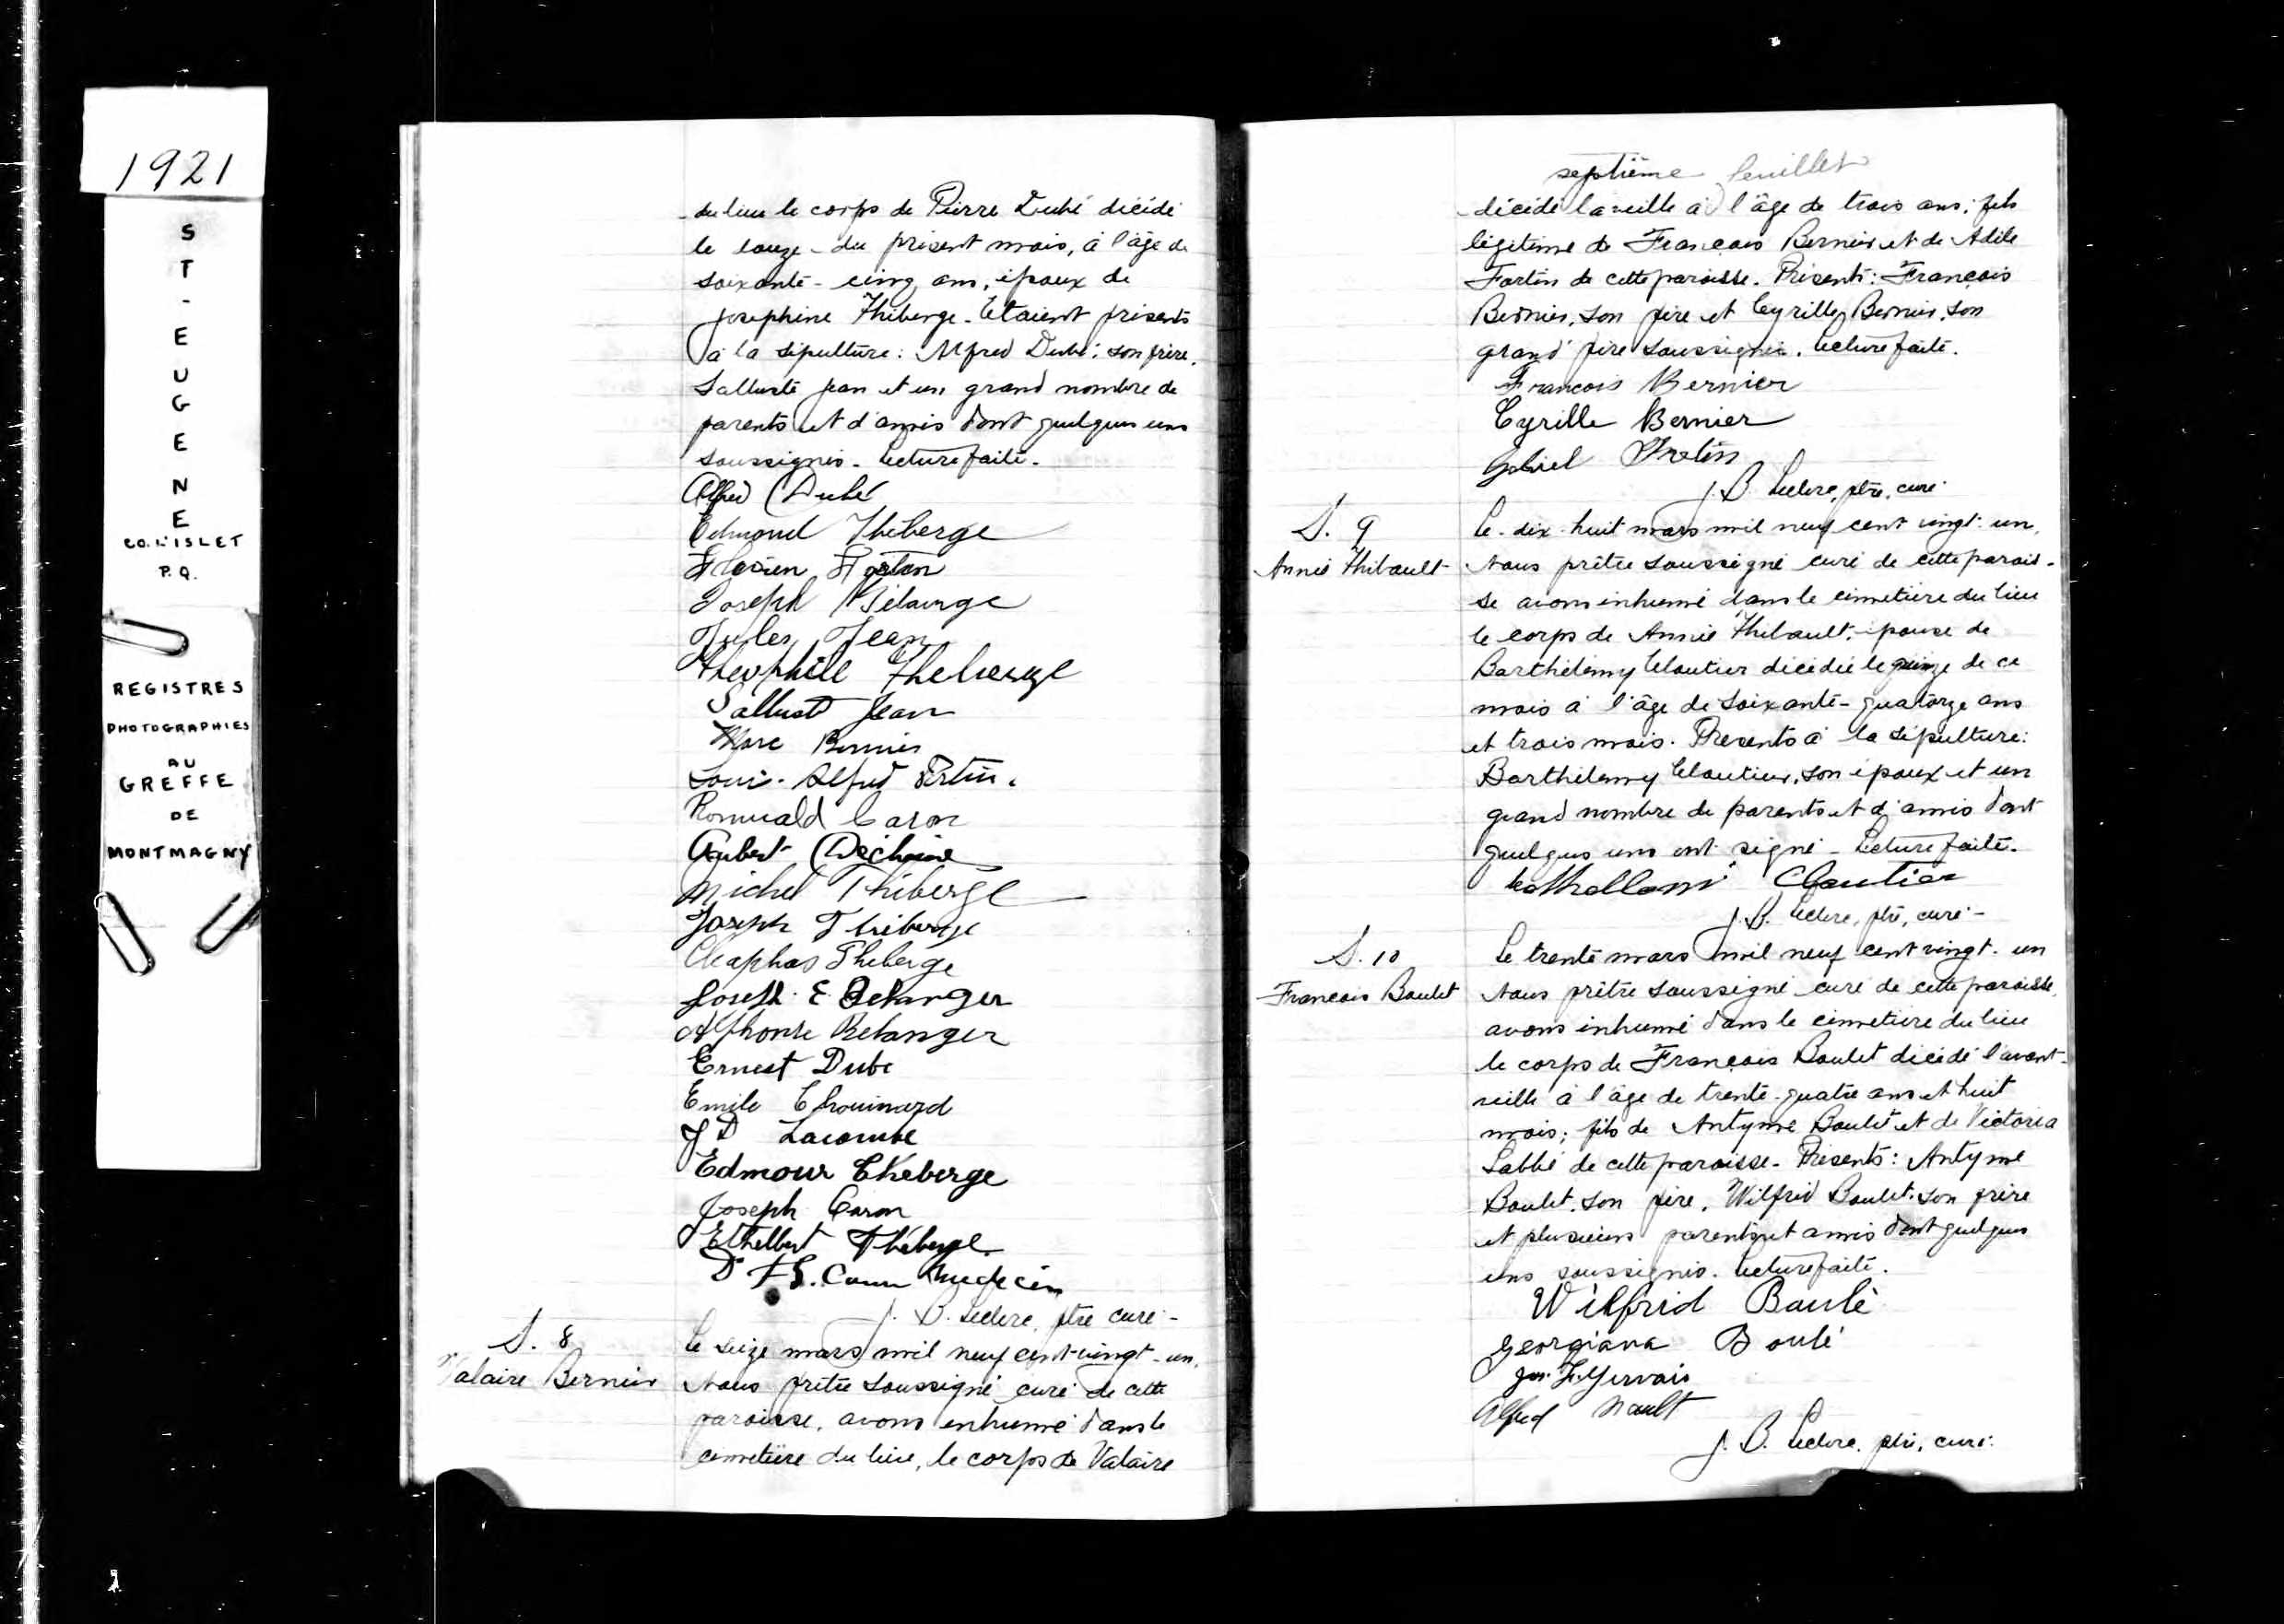 1921
ST-EUGENE
CO. L'ISLET
P.Q.
REGISTRES
PHOTOGRAPHIES
AU
GREFFE
DE
MONTMAGNY
du lieu le corps de Pierre Dubé décédé
le douze du présent mois, à l'âge de
soixante-cinq ans, époux de
Joséphine Théberge. Etaient présents
à la sépulture: Alfred Dubé, son frère,
Salluste Jean et un grand nombre de
parents et d'amis dont quelques uns
soussignés. Lecture faite.
Alfred Dubé
Edmond Théberge
Joseph Bélanger
Jules Jean
Theophile Theberge
Sallust Jean
Marc Bernier
Louis-Alfred Fortin.
Romuald Caron
Aubert Dechaine
Michel Théberge
Joseph Théberge
Cleophas Theberge
Joseph E Belanger
Alphonse Belanger
Ernest Dube
Emile Chouinard
J D Lacombe
Edmour Théberge
Joseph Caron
Ethelbert Théberge
Dr Caron Medecin
J. B. Leclerc, ptre curé-
S. 8
Valaire Bernier
Le seize mars mil neuf cent-vingt-un,
Nous prêtre soussigné curé de cette
paroisse, avons inhumé dans le
cimetière du lieu, le corps de Valaire
septième feuillet
décédé la veille à l'âge de trois ans, fils
légitime de François Bernier et de Adèle
Fortin de cette paroisse. Présents: François
Bernier, son père et Cyrille Bernier, son
grand'père soussignés. Lecture faite.
François Bernier
Cyrille Bernier
Fortin
J. B. Leclerc, ptre, curé
S. 9
Annie Thibault
Le dix-huit mars mil neuf cent vingt-un,
Nous prêtre soussigné curé de cette parois-
se avons inhumé dans le cimetière du lieu
le corps de Annie Thibault, épouse de
Barthélémy Cloutier décédée le quinze de ce
mois à l'âge de soixante-quatorze ans
et trois mois. Présents à la sépulture:
Barthélemy Cloutier, son époux et un
grand nombre de parents et d'amis dont
quelques uns ont signé - Lecture faite.
Cloutier
J. B. Leclerc, ptre, curé-
S. 10
François Boulet
Le trente mars mil neuf cent vingt-un
Nous prêtre soussigné curé de cette paroisse,
avons inhumé dans le cimetière du lieu
le corps de François Boulet décédé l'avant-
veille à l'âge de trente-quatre ans et huit
mois; fils de Antyme Boulet et de Victoria
Labbé de cette paroisse. Présents: Antyme
Boulet, son père, Wilfrid Boulet, son frère
et plusieurs parents et amis dont quelques
uns soussignés. Lecture faite.
Wilfrid Boulé
Georgiana Boulé
Gervais
Alfred Nault
J. B. Leclerc, ptre, curé.